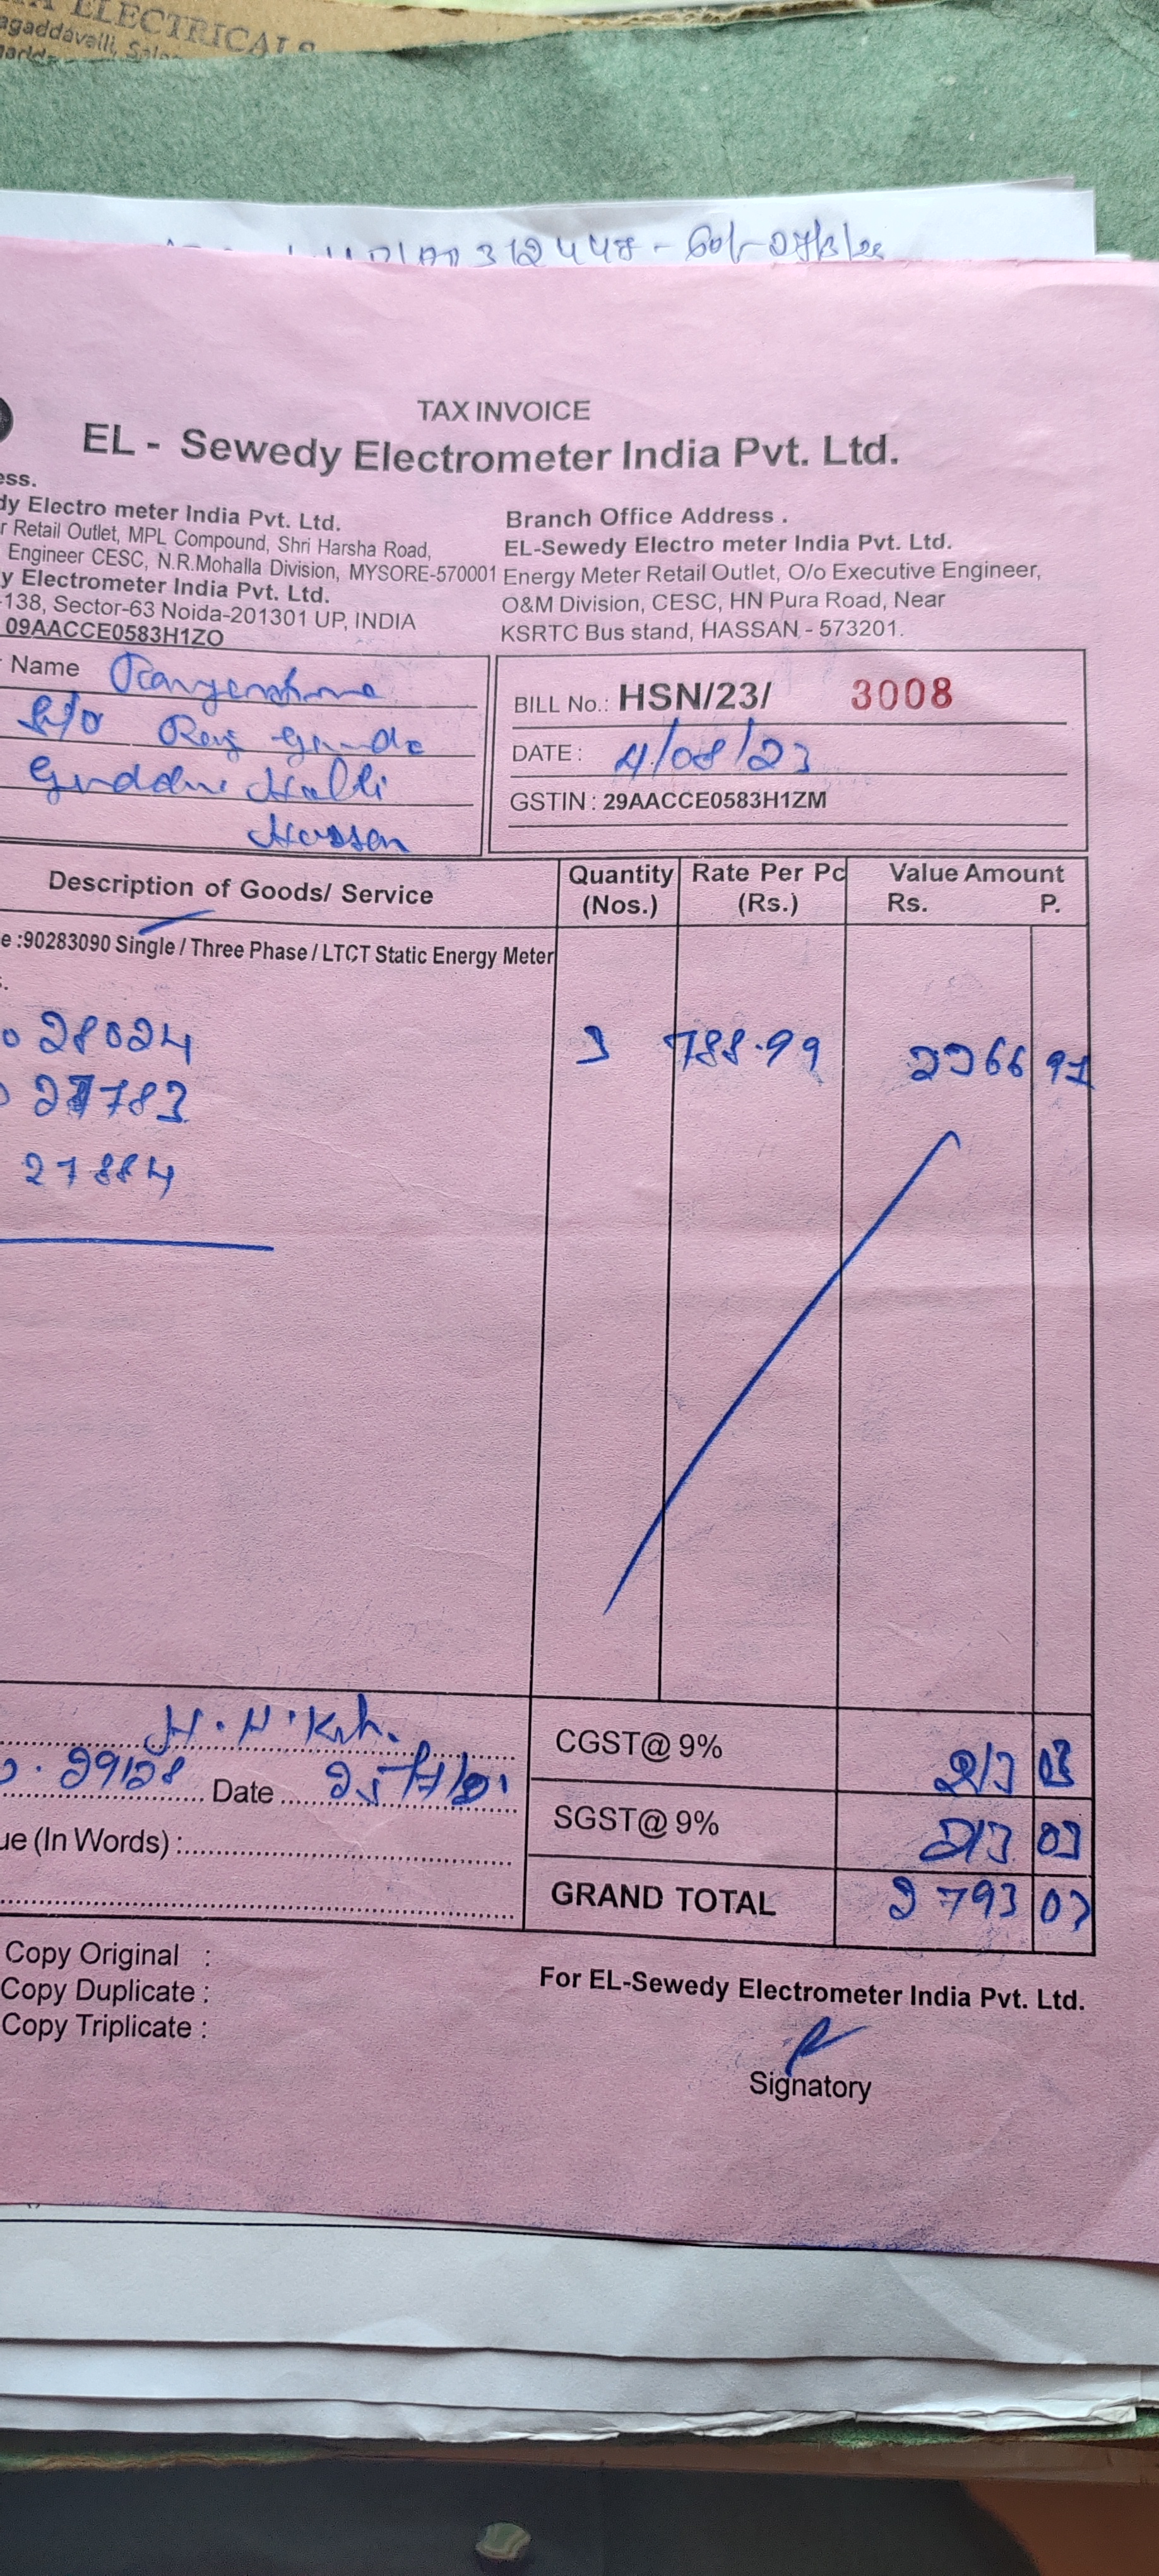 ELECTRICALS
agaddavalli,
312448-60/-
TAX INVOICE
EL - Sewedy Electrometer India Pvt. Ltd.
ess.
dy Electro meter India Pvt. Ltd.
r Retail Outlet, MPL Compound, Shri Harsha Road,
Engineer CESC, N.R.Mohalla Division, MYSORE-570001
y Electrometer India Pvt. Ltd.
-138, Sector-63 Noida-201301 UP, INDIA
09AACCE0583H1ZO
Branch Office Address .
EL-Sewedy Electro meter India Pvt. Ltd.
Energy Meter Retail Outlet, O/o Executive Engineer,
O&M Division, CESC, HN Pura Road, Near
KSRTC Bus stand, HASSAN - 573201.
Name
S/o
Halli
Hassan
BILL No.: HSN/23/ 3008
DATE : 4/08/23
GSTIN : 29AACCE0583H1ZM
Description of Goods/ Service
Quantity (Nos.)
Rate Per Pc (Rs.)
Value Amount
Rs. P.
e :90283090 Single / Three Phase / LTCT Static Energy Meter
28024 3 788.99 2366 97
27783
27884
CGST@ 9% 213 03
Date
SGST@ 9% 213 03
ue (In Words) :
GRAND TOTAL 2793 03
Copy Original :
Copy Duplicate :
Copy Triplicate :
For EL-Sewedy Electrometer India Pvt. Ltd.
Signatory